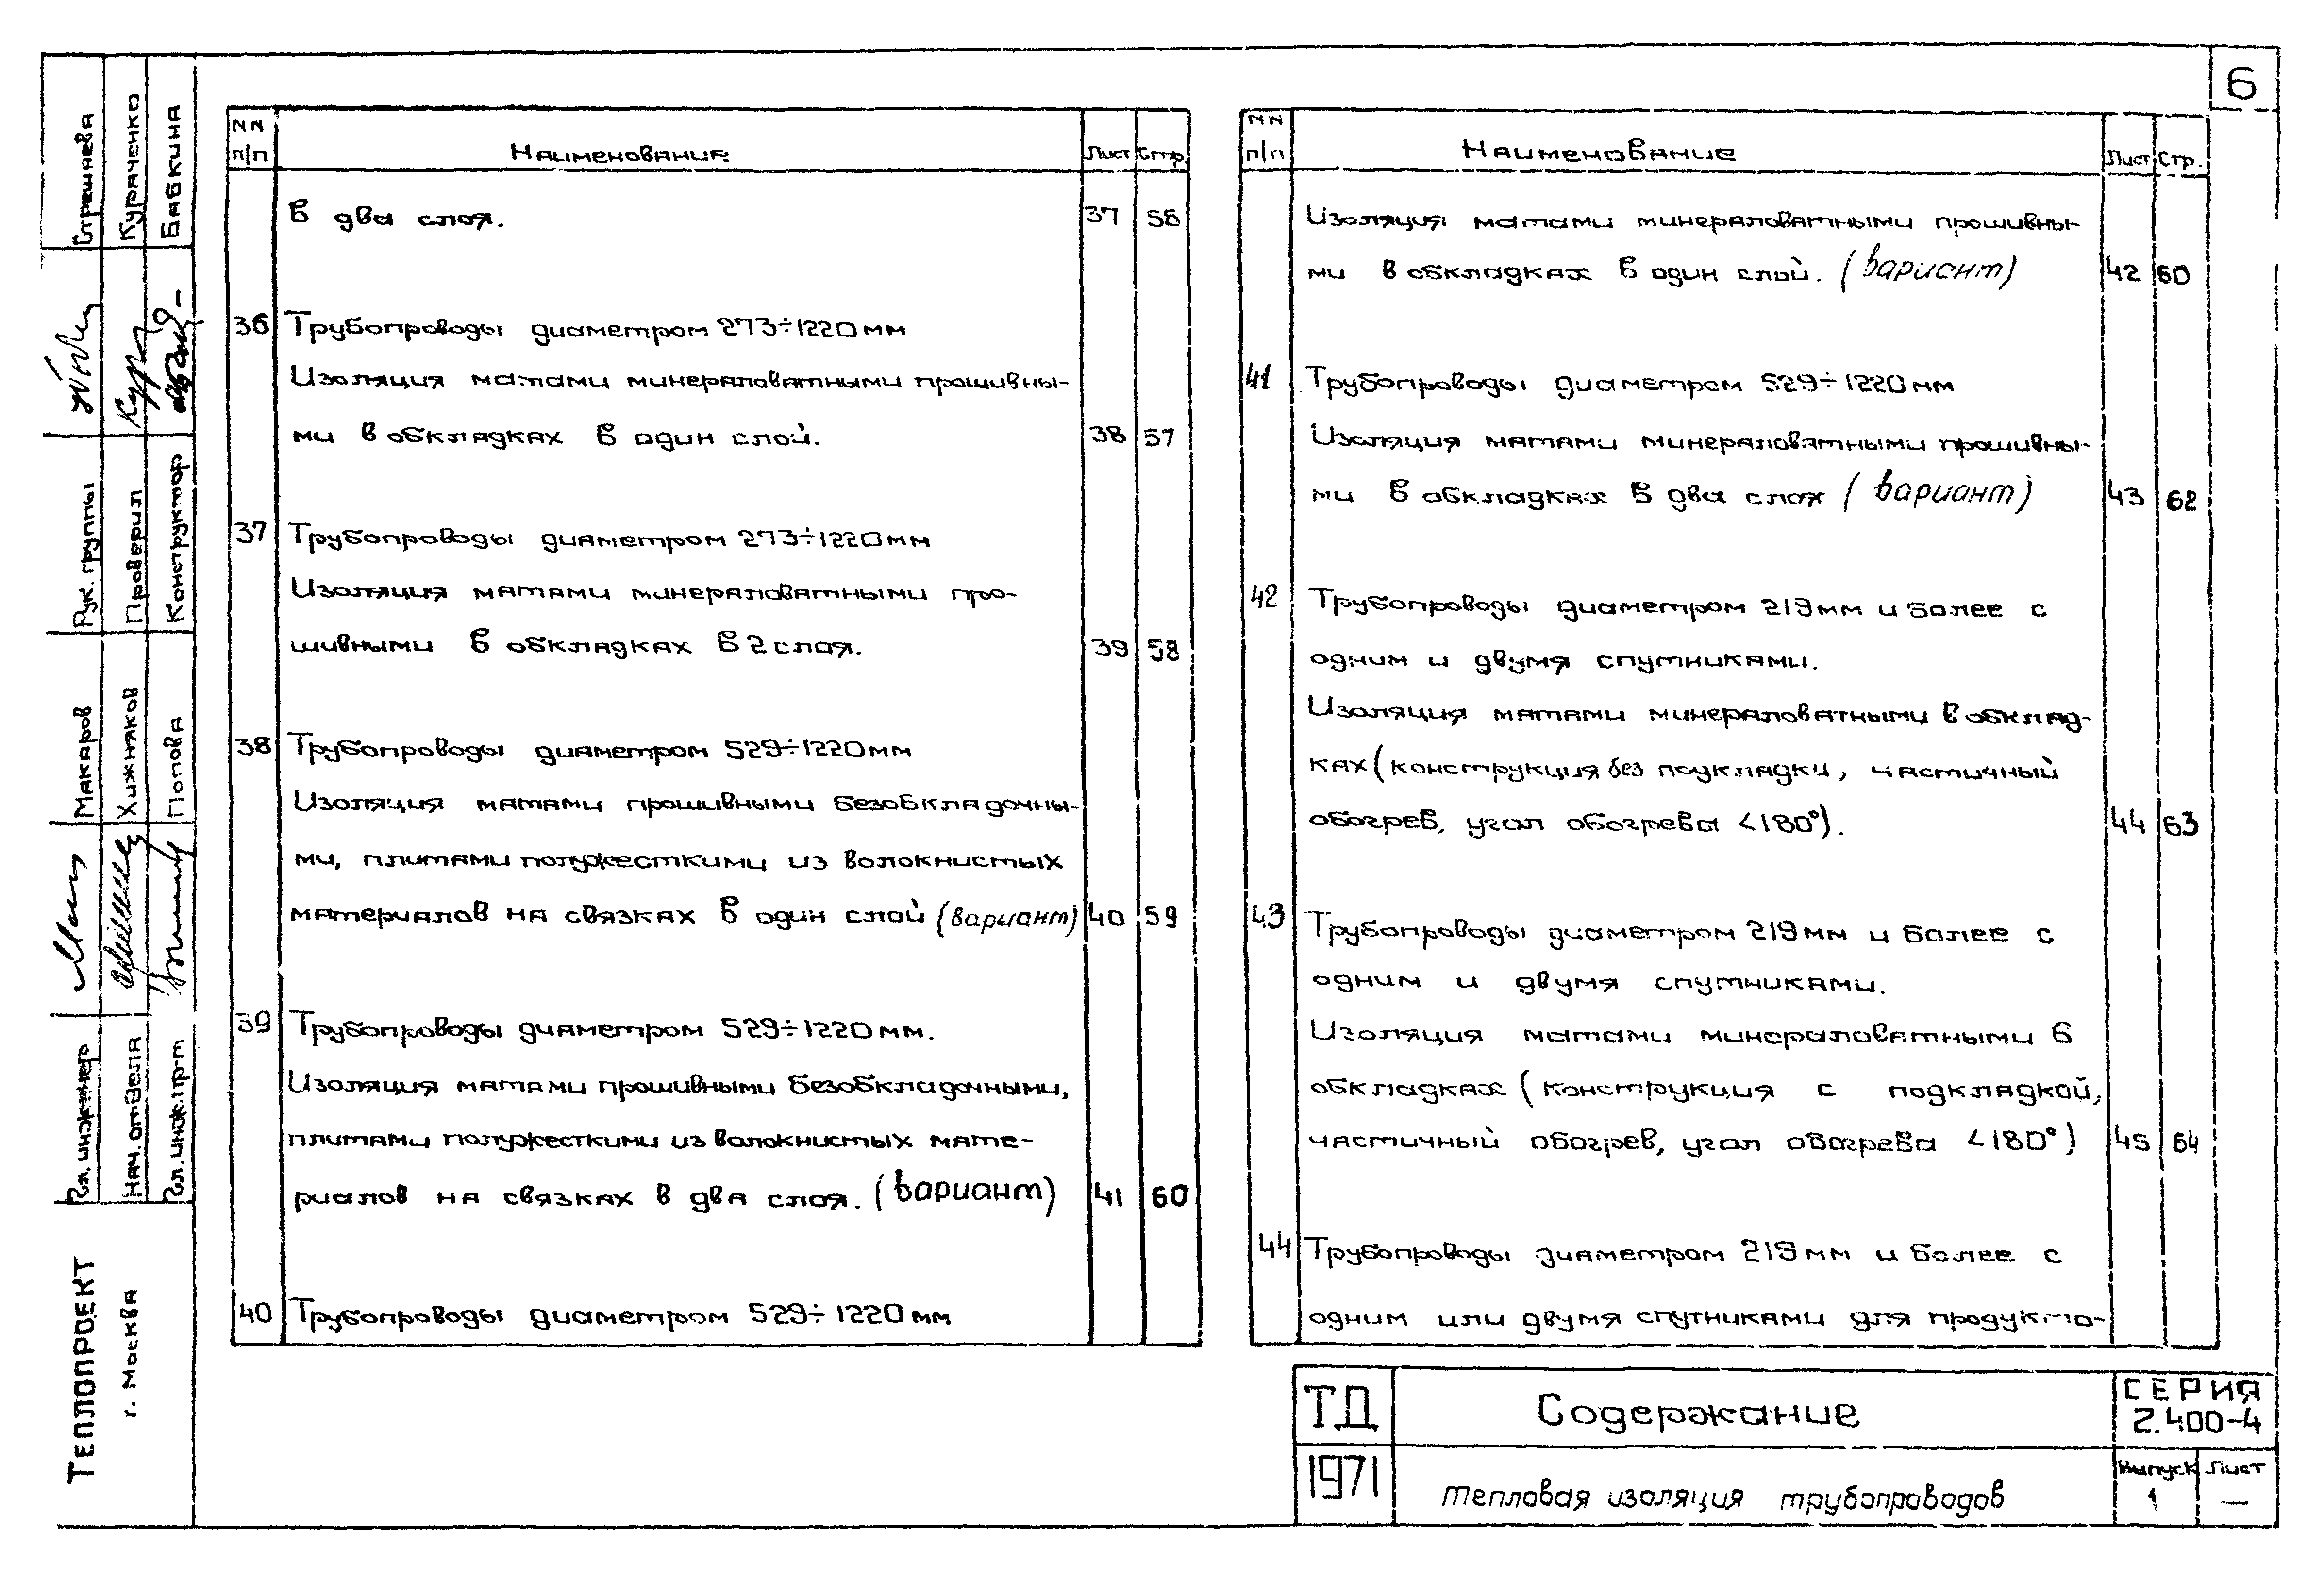 6
NN
п/п
Наименование
Лист
Стр.
в два слоя.
37
56
36
Трубопроводы диаметром 273÷1220 мм
Изоляция матами минераловатными прошивны-
ми в обкладках в один слой.
38
57
37
Трубопроводы диаметром 273÷1220 мм
Изоляция матами минераловатными про-
шивными в обкладках в 2 слоя.
39
58
38
Трубопроводы диаметром 529÷1220 мм
Изоляция матами прошивными безобкладочны-
ми, плитами полужесткими из волокнистых
материалов на связках в один слой (вариант)
40
59
39
Трубопроводы диаметром 529÷1220 мм.
Изоляция матами прошивными безобкладочными,
плитами полужесткими из волокнистых мате-
риалов на связках в два слоя. (вариант)
41
60
40
Трубопроводы диаметром 529÷1220 мм
NN
п/п
Наименование
Лист
Стр.
Изоляция матами минераловатными прошивны-
ми в обкладках в один слой. (вариант)
42
60
41
Трубопроводы диаметром 529÷1220 мм
Изоляция матами минераловатными прошивны-
ми в обкладках в два слоя (вариант)
43
62
42
Трубопроводы диаметром 219 мм и более с
одним и двумя спутниками.
Изоляция матами минераловатными в обклад-
ках (конструкция без подкладки, частичный
обогрев, угол обогрева <180°).
44
63
43
Трубопроводы диаметром 219 мм и более с
одним и двумя спутниками.
Изоляция матами минераловатными в
обкладках (конструкция с подкладкой,
частичный обогрев, угол обогрева <180°)
45
64
44
Трубопроводы диаметром 219 мм и более с
одним или двумя спутниками для продукто-
ТД
1971
Содержание
Тепловая изоляция трубопроводов
СЕРИЯ
2.400-4
Выпуск
1
Лист
—
Гл. инженер
Макаров
Рук. группы
Стрешнева
Нач. отдела
Хижняков
Проверил
Кураченко
Гл. инж. пр-т
Попова
Конструктор
Бабкина
ТЕПЛОПРОЕКТ
г. Москва